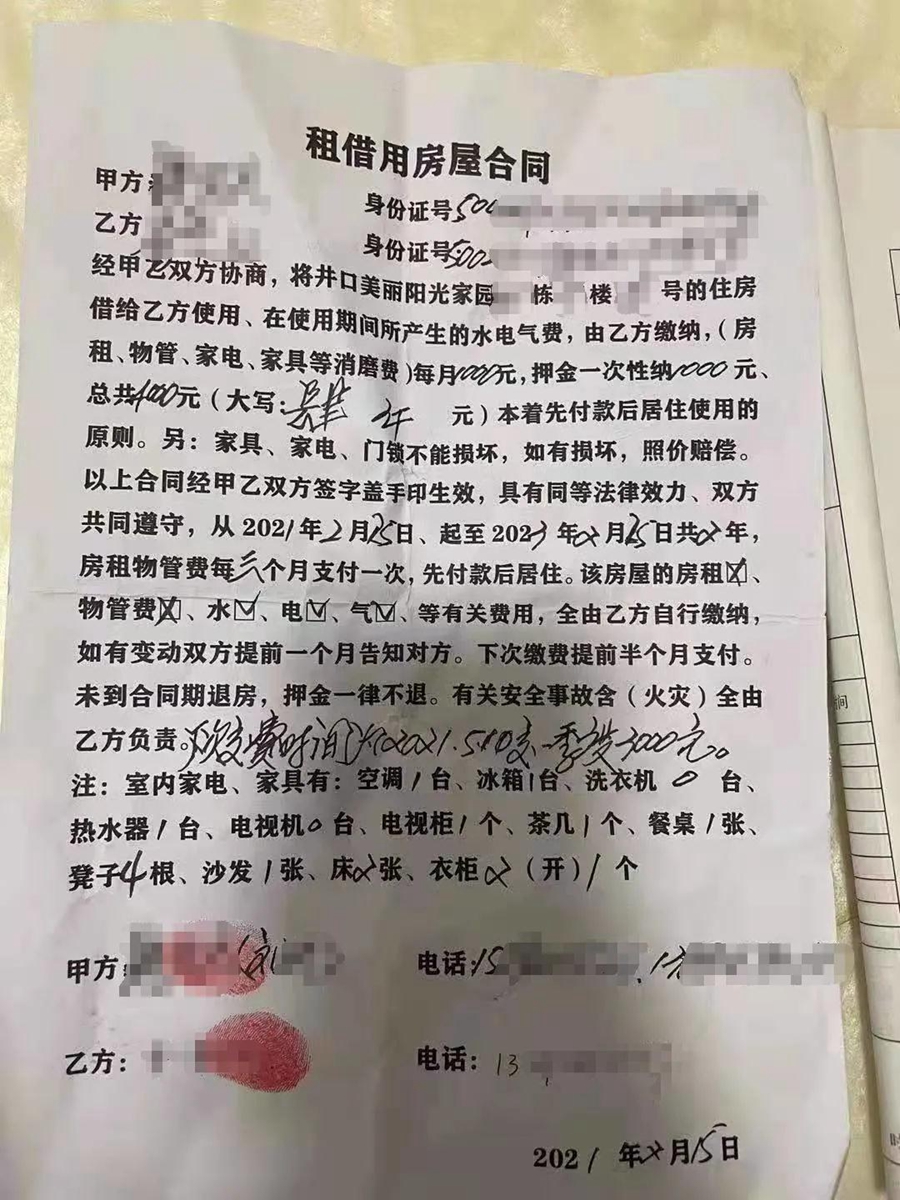 租借用房屋合同
甲方: 身份证号500
乙方 身份证号5002
经甲乙双方协商，将井口美丽阳光家园 栋 楼 号的住房
借给乙方使用、在使用期间所产生的水电气费，由乙方缴纳，（房
租、物管、家电、家具等消磨费）每月1000元，押金一次性纳1000元、
总共4000元（大写： 元）本着先付款后居住使用的
原则。另：家具、家电、门锁不能损坏，如有损坏，照价赔偿。
以上合同经甲乙双方签字盖手印生效，具有同等法律效力、双方
共同遵守，从2021年2月25日、起至2023年2月25日共2年，
房租物管费每三个月支付一次，先付款后居住。该房屋的房租☒、
物管费☒、水☑、电☑、气☑、等有关费用，全由乙方自行缴纳，
如有变动双方提前一个月告知对方。下次缴费提前半个月支付。
未到合同期退房，押金一律不退。有关安全事故含（火灾）全由
乙方负责。下次交费时间为2021.5.10交一季度3000元。
注：室内家电、家具有：空调1台、冰箱1台、洗衣机0台、
热水器1台、电视机0台、电视柜1个、茶几1个、餐桌1张、
凳子4根、沙发1张、床2张、衣柜2（开）1个
甲方: 电话:15
乙方: 电话:13
2021年2月15日